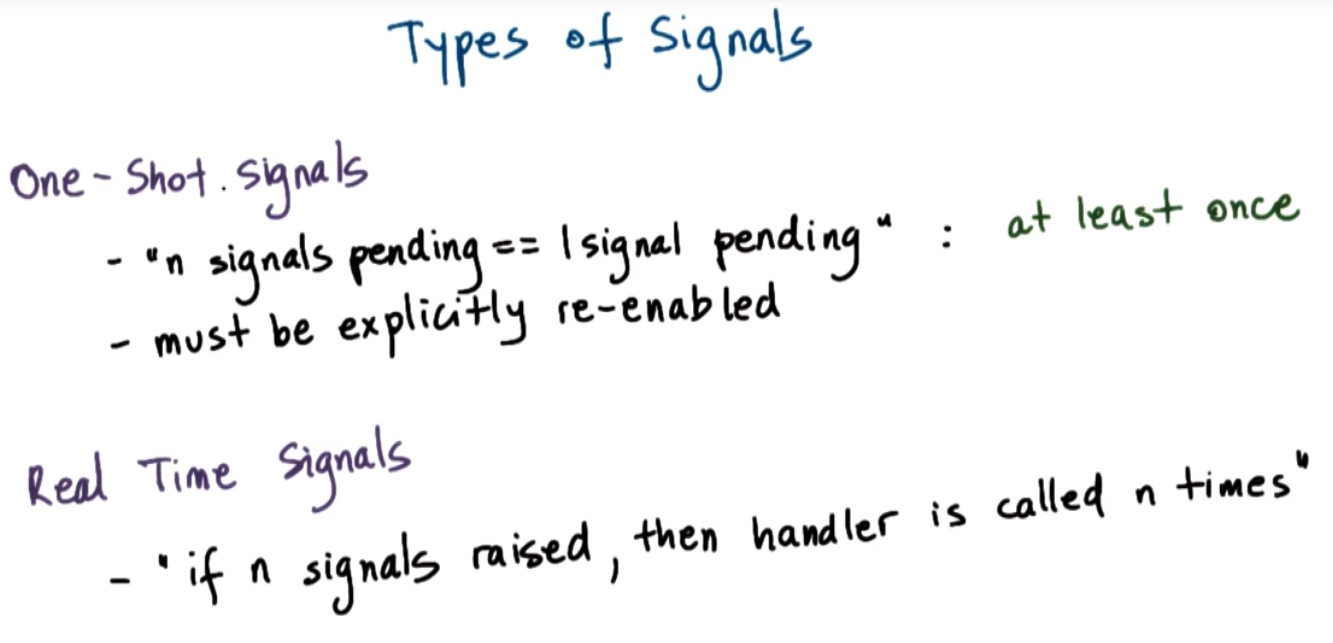 Types of Signals
One-Shot. Signals
- "n signals pending == 1 signal pending" : at least once
- must be explicitly re-enabled
Real Time Signals
- "if n signals raised, then handler is called n times"